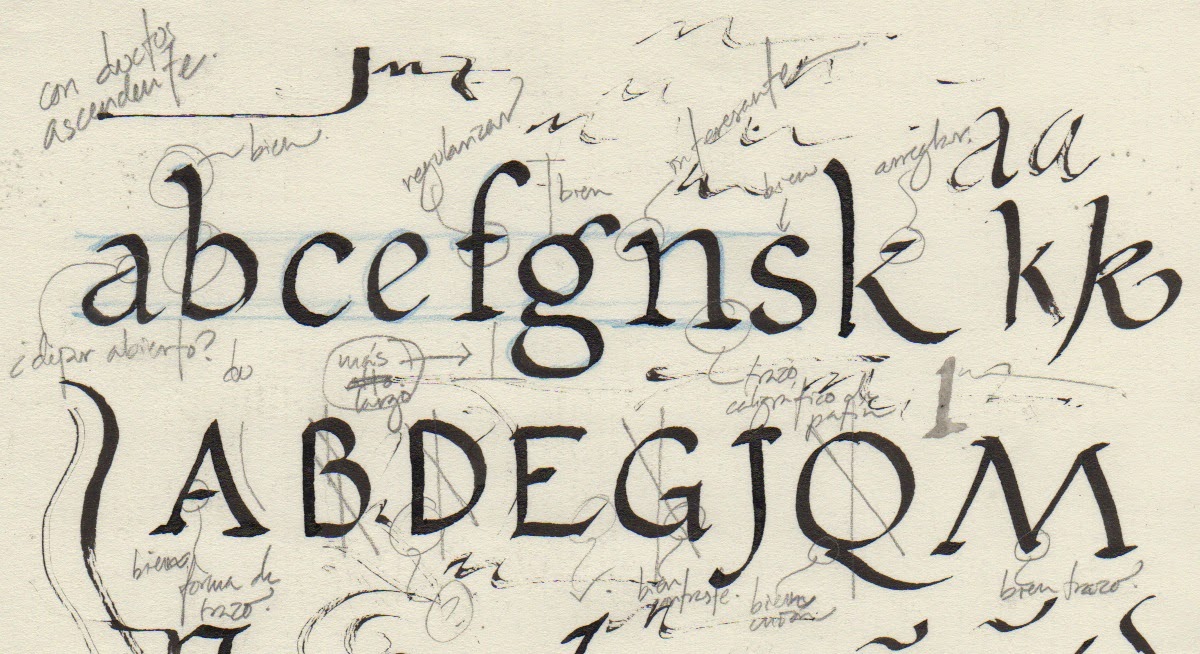 con ductus
ascendente.
bien
regularizar
interesante
bien
bien
arreglar.
aa
abcefgnsk kk
¿dejar abierto?
más
alto
largo
trazo
caligráfico de
l
ABDEGJQM
forma de
trazo.
bien
contraste.
bien trazo.